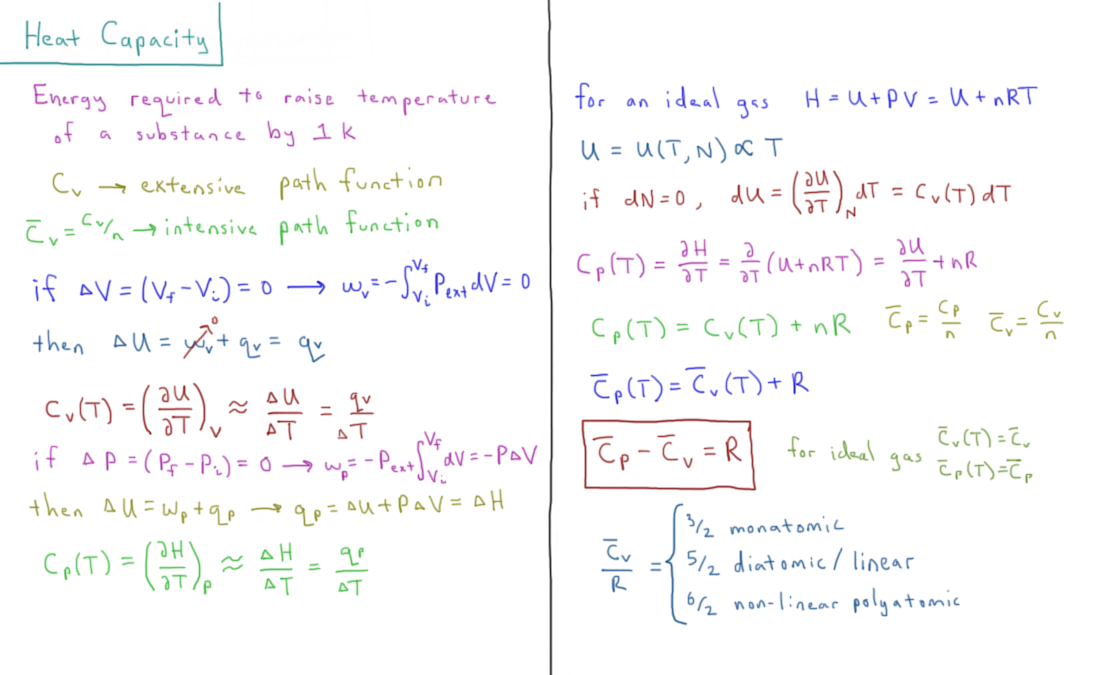 Heat Capacity
Energy required to raise temperature
of a substance by 1 K
C_v → extensive path function
C̅_v = C_v/n → intensive path function
if ΔV = (V_f - V_i) = 0 → w_v = -∫_{V_i}^{V_f} P_ext dV = 0
then ΔU = w_v↗0 + q_v = q_v
C_v(T) = (∂U/∂T)_v ≈ ΔU/ΔT = q_v/ΔT
if ΔP = (P_f - P_i) = 0 → w_p = -P_ext ∫_{V_i}^{V_f} dV = -PΔV
then ΔU = w_p + q_p → q_p = ΔU + PΔV = ΔH
C_p(T) = (∂H/∂T)_p ≈ ΔH/ΔT = q_p/ΔT
for an ideal gas H = U + PV = U + nRT
U = U(T, N) ∝ T
if dN = 0, dU = (∂U/∂T)_N dT = C_v(T) dT
C_p(T) = ∂H/∂T = ∂/∂T (U + nRT) = ∂U/∂T + nR
C_p(T) = C_v(T) + nR C̅_p = C_p/n C̅_v = C_v/n
C̅_p(T) = C̅_v(T) + R
C̅_p - C̅_v = R
for ideal gas C̅_v(T) = C̅_v
C̅_p(T) = C̅_p
C̅_v/R = {
3/2 monatomic
5/2 diatomic / linear
6/2 non-linear polyatomic